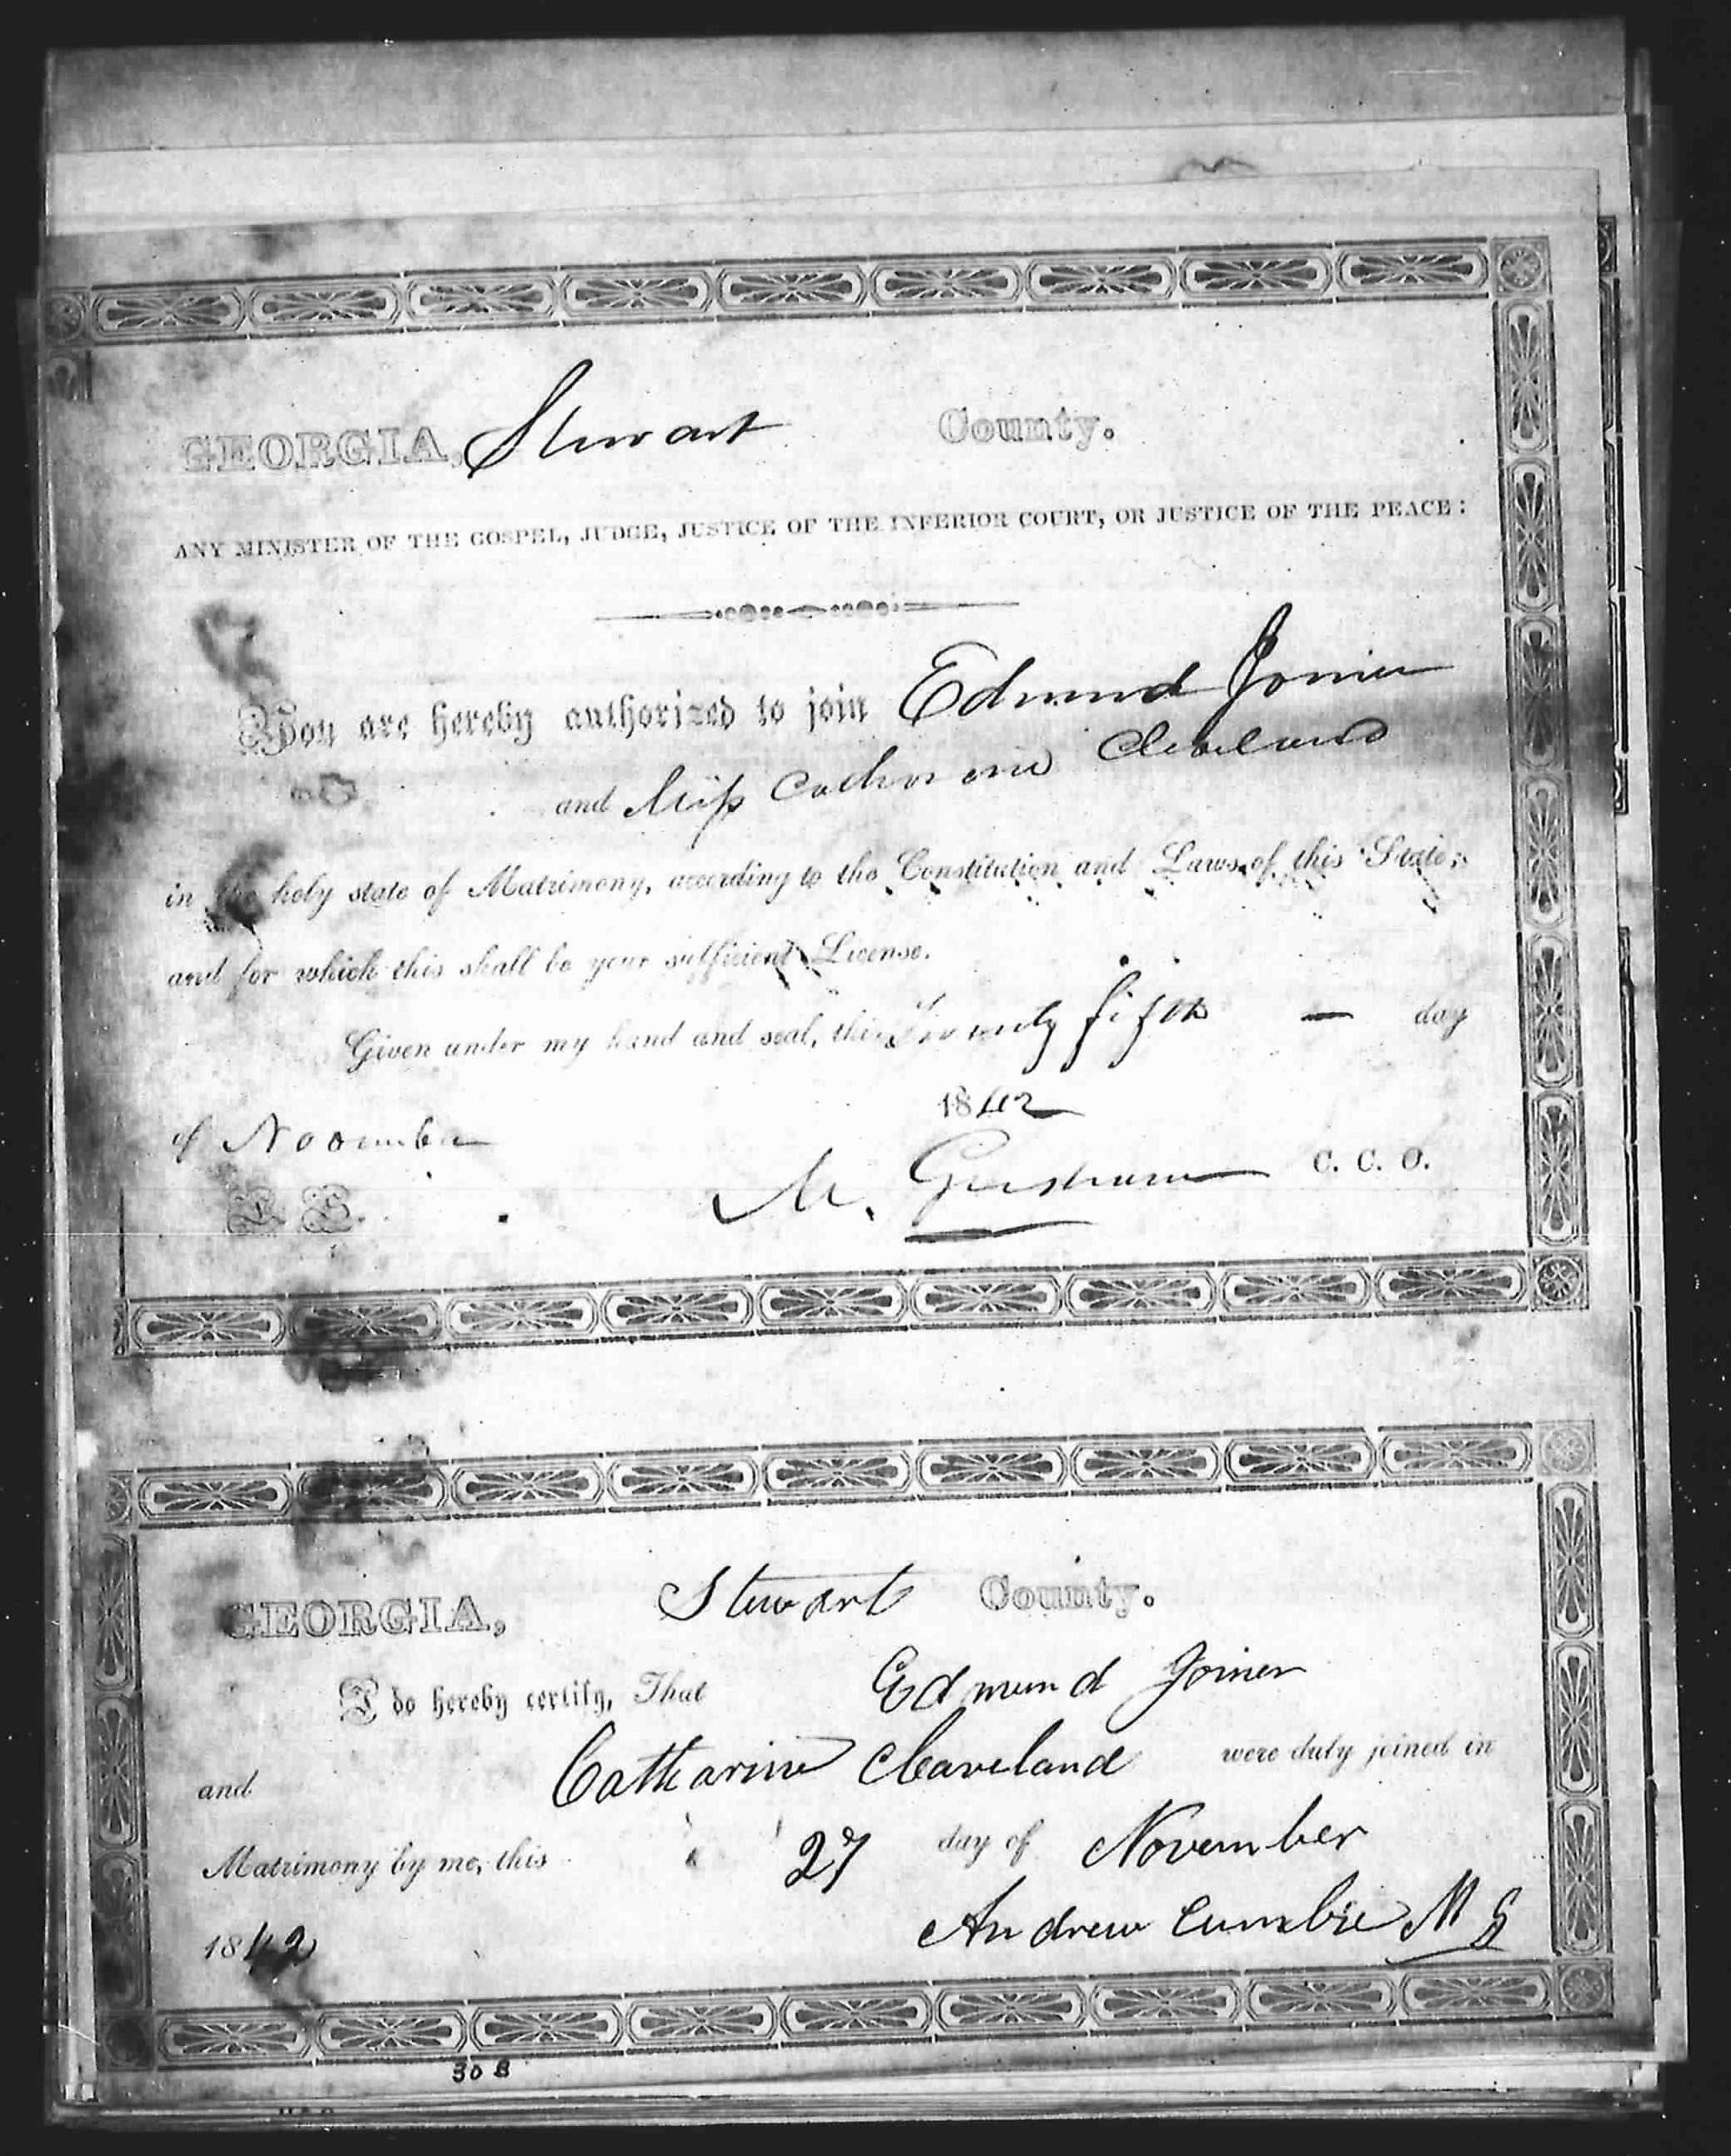 GEORGIA, Stewart County.
ANY MINISTER OF THE GOSPEL, JUDGE, JUSTICE OF THE INFERIOR COURT, OR JUSTICE OF THE PEACE:
You are hereby authorized to join Edmund Joiner
and Miss Catharine Cleveland
in the holy state of Matrimony, according to the Constitution and Laws of this State;
and for which this shall be your sufficient License.
Given under my hand and seal, this Twenty fifth — day
of November 1842
M. Gresham C. C. O.
L. S.
GEORGIA, Stewart County.
I do hereby certify, That Edmund Joiner
and Catharine Cleaveland were duly joined in
Matrimony by me, this 27 day of November
1842 Andrew Cumbie M G
308